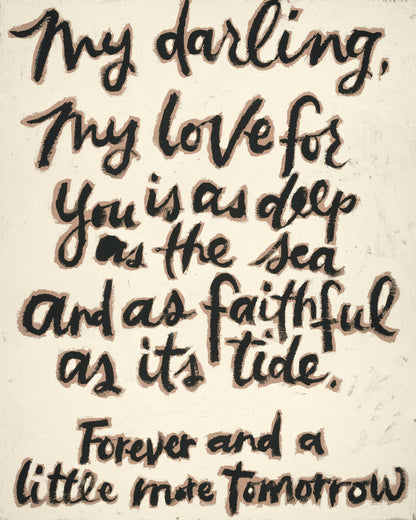 My darling,
My love for
you is as deep
as the sea
and as faithful
as it's tide.
Forever and a
little more Tomorrow